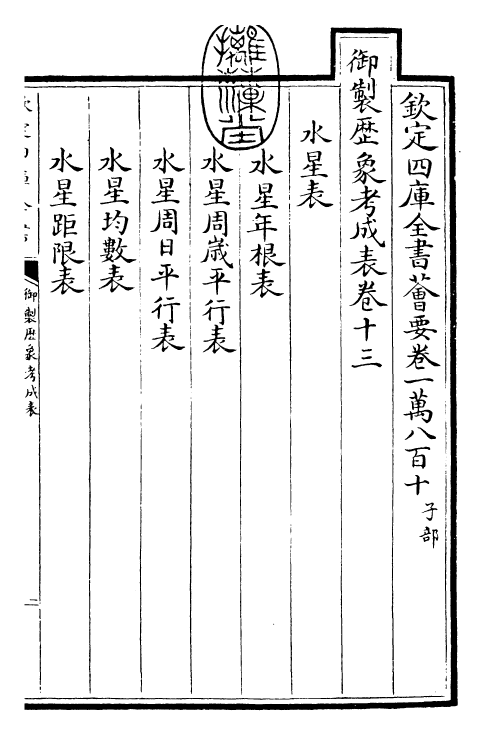 欽定四庫全書薈要卷一萬八百十 子部
御製歷象考成表卷十三
水星表
水星年根表
水星周歲平行表
水星周日平行表
水星均數表
水星距限表
御製歷象考成表